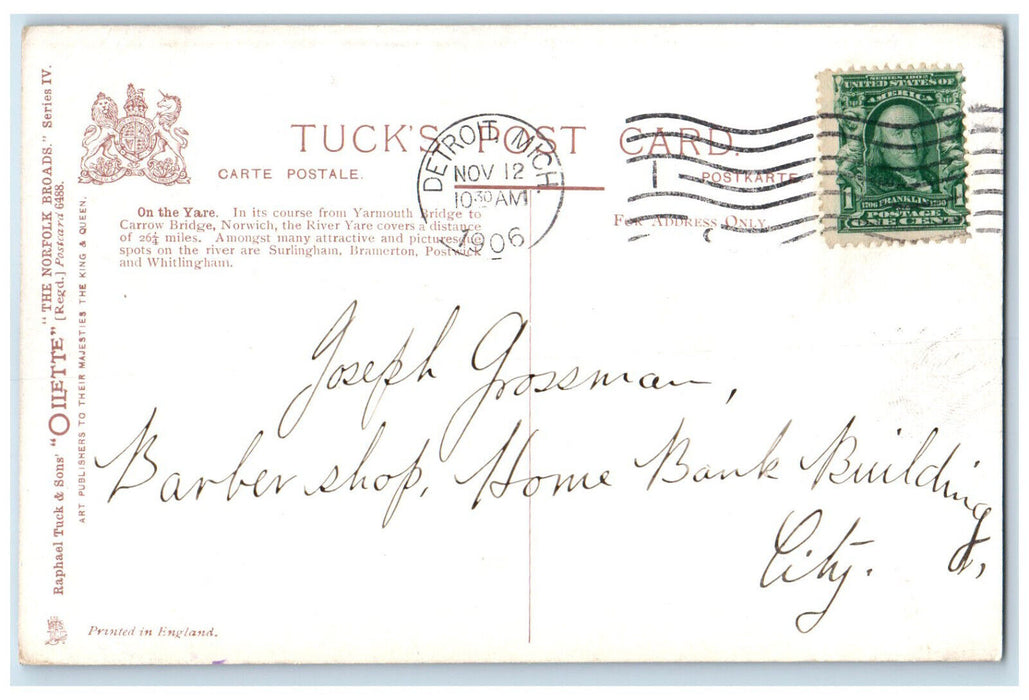 Raphael Tuck & Sons' "OILETTE" "THE NORFOLK BROADS." Series IV.
[Regd.] Postcard 6488.
ART PUBLISHERS TO THEIR MAJESTIES THE KING & QUEEN.
TUCK'S POST CARD.
CARTE POSTALE.
POSTKARTE
On the Yare. In its course from Yarmouth Bridge to
Carrow Bridge, Norwich, the River Yare covers a distance
of 26¼ miles. Amongst many attractive and picturesque
spots on the river are Surlingham, Bramerton, Postwick
and Whitlingham.
FOR ADDRESS ONLY.
DETROIT, MICH.
NOV 12
10 30 AM
1906
1
SERIES 1902
UNITED STATES OF
AMERICA
1706 FRANKLIN 1790
1 POSTAGE 1
ONE CENT
Joseph Grossman,
Barber shop, Home Bank Building,
City.
Printed in England.